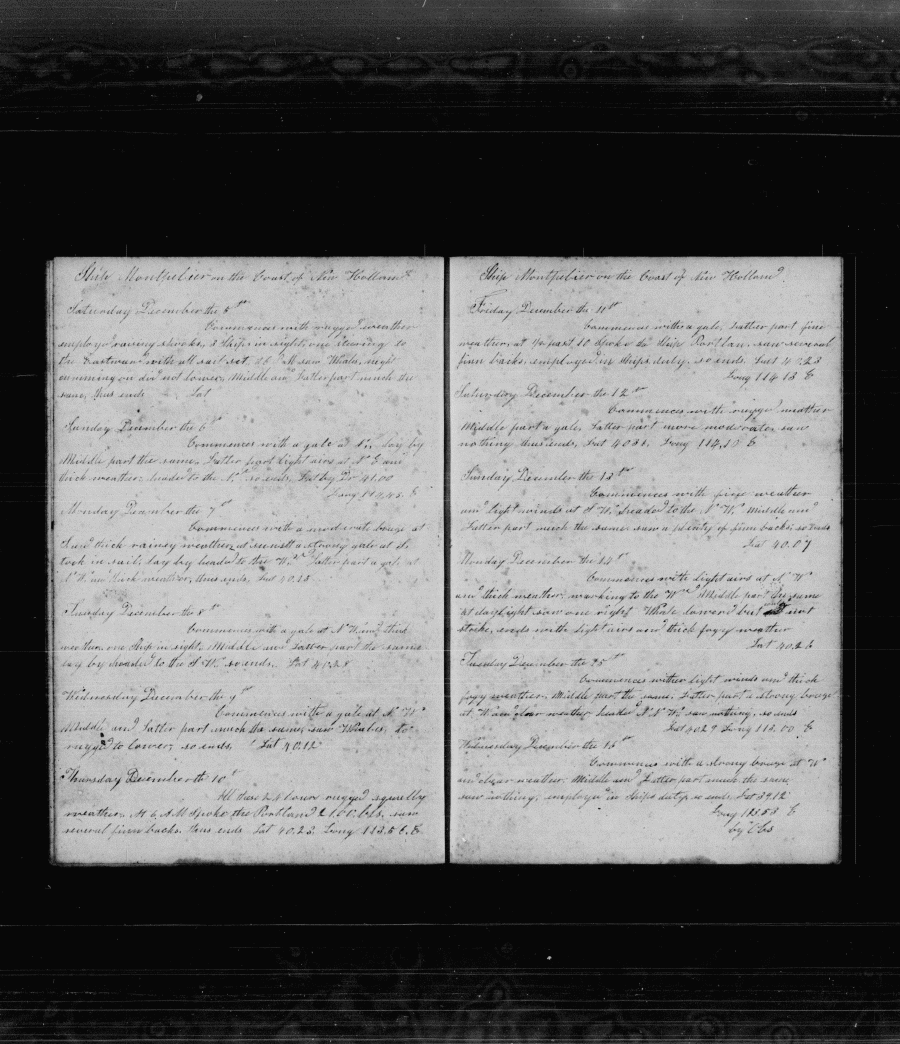 Ship Montpelier on the Coast of New Holland
Saturday December the 5th
Commences with rugged weather
employd raising shooks, 3 ships in sight, one steering to
the Eastward with all sail set. at M saw Whale, night
comming on did not lower, Middle and Latter part much the
same, thus ends Lat
Sunday December the 6th
Commences with a gale at lay by
Middle part the same. Latter part light airs at N E and
thick weather headed to the N so ends. Lat by Dr 41.00
Long 114.45 E
Monday December the 7th
Commences with a moderate breeze at
and thick rainey weather, at sunsett a strong gale at
took in sail, lay by headed to the Wd Latter part a gale at
N W and thick weather, thus ends, Lat 40.15
Tuesday December the 8th
Commences with a gale at N W and thick
weather, one Ship in sight. Middle and Latter part the same
lay by headed to the S W. so ends. Lat 41.28
Wednesday December the 9th
Commences with a gale at N W
Middle and Latter part much the same, saw Whales, to
rugged to lower, so ends, Lat 40.12
Thursday December the 10th
All these 24 hours rugged squally
weather. At 6 A M Spoke the Portland bbls, saw
several finn backs. thus ends Lat 40.23. Long 113.56. E.
Ship Montpelier on the Coast of New Holland
Friday December the 11th
Commences with a gale, Latter part fine
weather, at past 10 Spoke the Ship Portlan, saw several
finn backs, employed in ships duty, so ends Lat 42.23
Long 114 13 E
Saturday December the 12th
Commences with rugged weather
Middle part a gale, Latter part more moderate, saw
nothing thus ends, Lat 40.38, Long 114.10 E
Sunday December the 13th
Commences with fine weather
and light winds at S W. headed to the N W. Middle and
Latter part much the same saw a plenty of finn backs, so ends
Lat 40.07
Monday December the 14th
Commences with light airs at N W
and thick weather, working to the Wd Middle part the same
at daylight saw one right Whale lowerd but did not
strike, ends with light airs and thick fogy weather
Lat 40.26
Tuesday December the 15th
Commences with light winds and thick
fogy weather, Middle part the same. Latter part a strong breeze
at W and clear weather headed N N W. saw nothing, so ends
Lat 40.29 Long 113.00 E
Wednesday December the 16th
Commences with a strong breeze at W
and clear weather. Middle and Latter part much the same
saw nothing, employd in Ships duty so ends. Lat 39.12
Long 113.58 E
by Obs